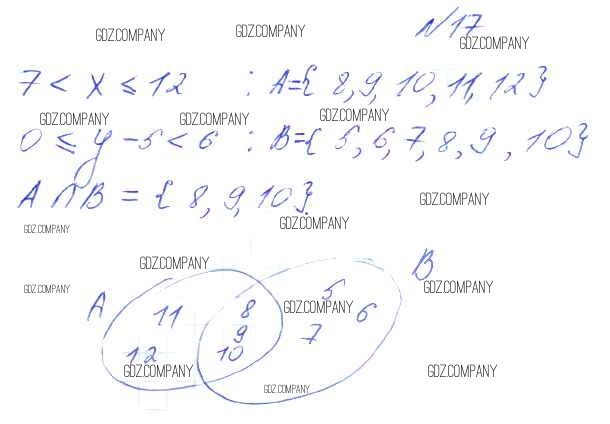 N17
GDZ.COMPANY GDZ.COMPANY GDZ.COMPANY
7 < x ≤ 12 : A={ 8, 9, 10, 11, 12}
GDZ.COMPANY GDZ.COMPANY GDZ.COMPANY
0 ≤ y - 5 < 6 : B={ 5, 6, 7, 8, 9, 10}
A ∩ B = { 8, 9, 10}
GDZ.COMPANY
GDZ.COMPANY GDZ.COMPANY
GDZ.COMPANY B
GDZ.COMPANY GDZ.COMPANY
A 11 8 GDZ.COMPANY 5 6
9 7
12 10
GDZ.COMPANY GDZ.COMPANY
GDZ.COMPANY